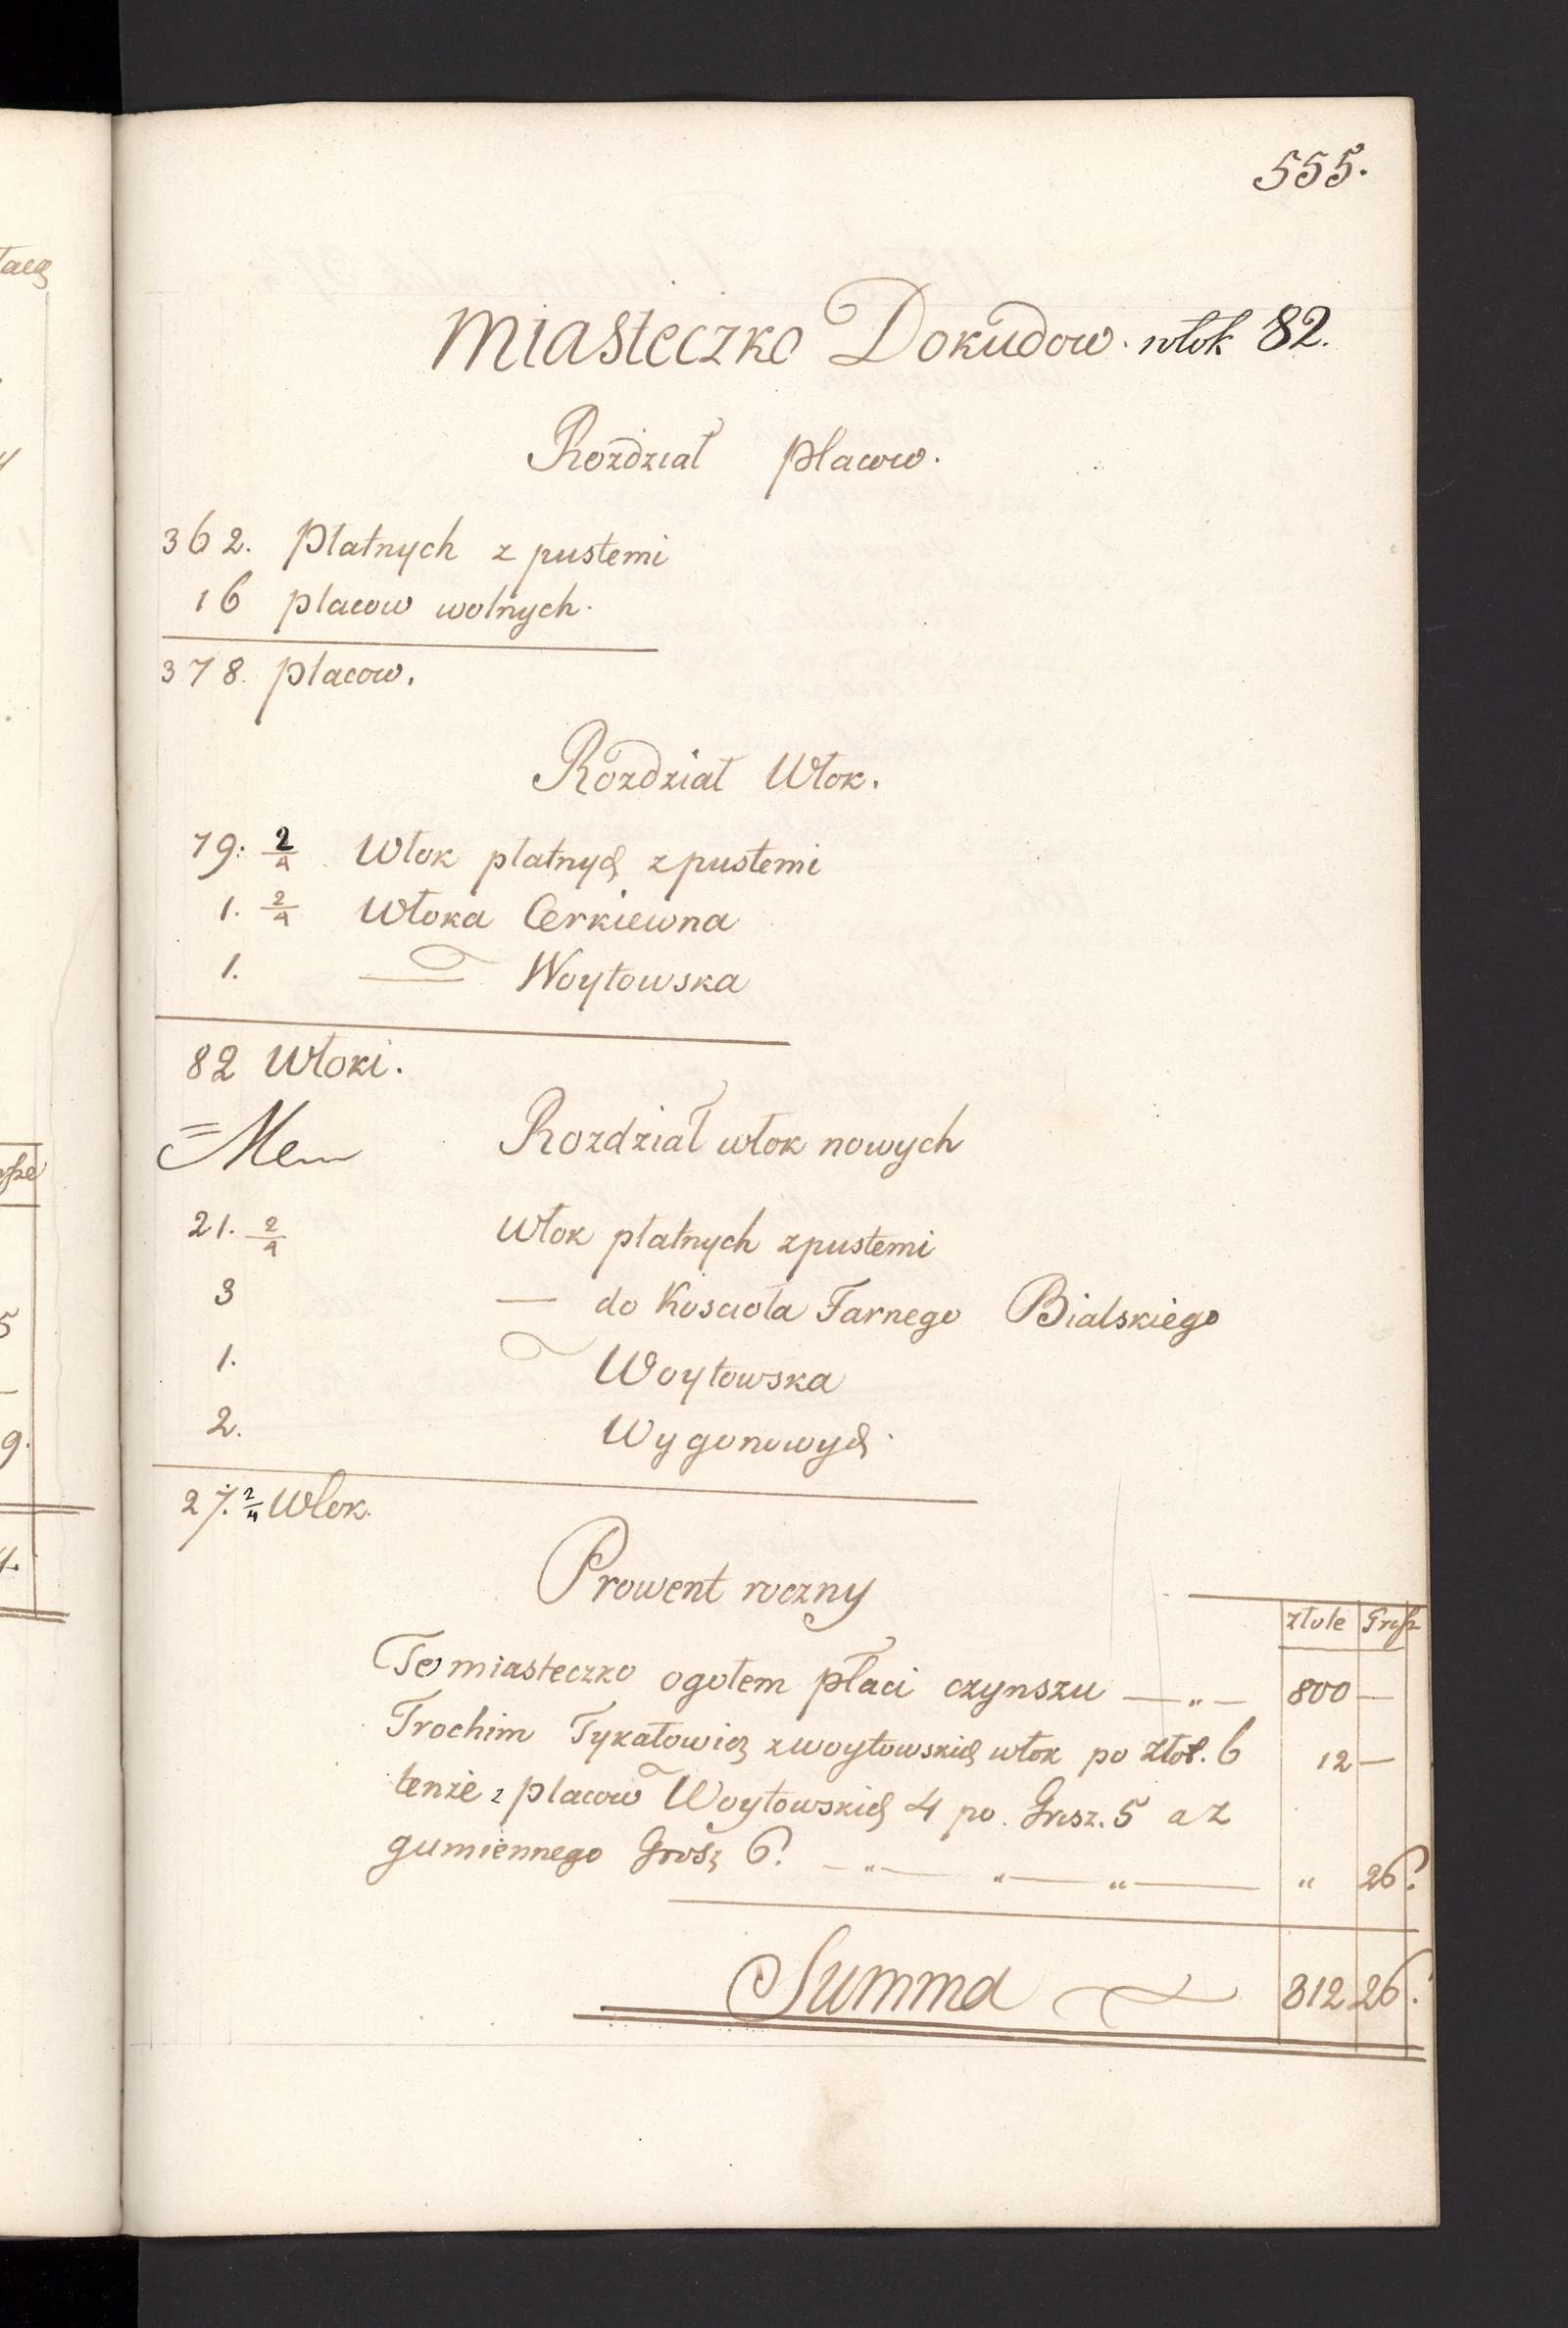 555.
Miasteczko Dokudow. włok 82.
Rozdział placow.
362. Płatnych z pustemi
16 placow wolnych.
378. placow.
Rozdział Włok.
79: 2/4 Włok płatnych z pustemi
1. 2/4 Włoka Cerkiewna
1. — Woytowska
82 Włoki.
= Mem Rozdział włok nowych
21. 2/4 Włok płatnych z pustemi
3 — do Koscioła Farnego Bialskiego
1. Woytowska
2. Wygonowych.
27. 2/4 Włok.
Prowent roczny
złote Grosz
Te miasteczko ogołem płaci czynszu — „ — 800 —
Trochim Tykałowicz z woytowskich włok po złot. 6 12 —
tenże z placow Woytowskich 4 po. Grosz. 5 a z
gumiennego Grosz 6. — „ — „ — „ — „ 26.
Summa 812 26.